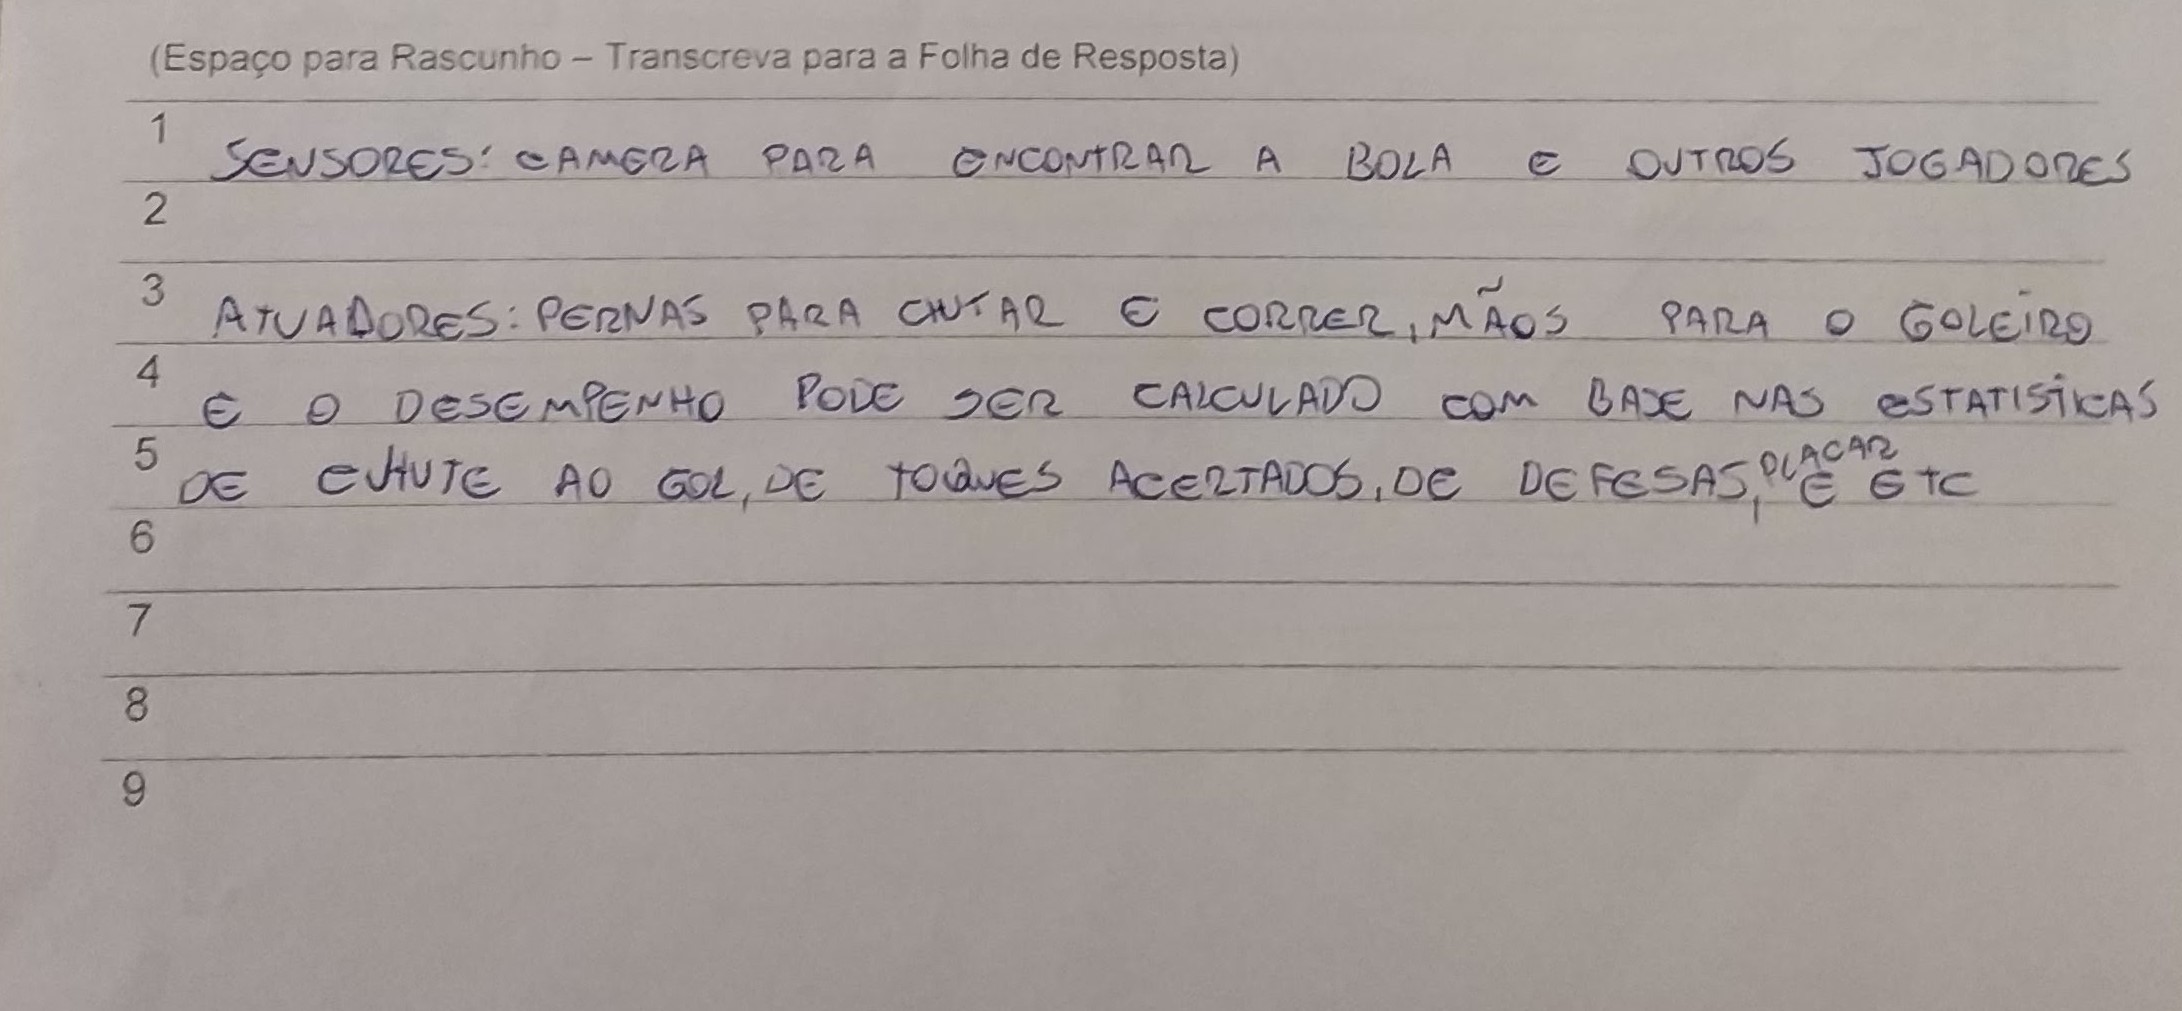 (Espaço para Rascunho – Transcreva para a Folha de Resposta)
1 SENSORES: CAMERA PARA ENCONTRAR A BOLA E OUTROS JOGADORES
2
3 ATUADORES: PERNAS PARA CHUTAR E CORRER, MÃOS PARA O GOLEIRO
4 E O DESEMPENHO PODE SER CALCULADO COM BASE NAS ESTATISTICAS
5 DE CHUTE AO GOL, DE TOQUES ACERTADOS, DE DEFESAS, PLACAR E ETC
6
7
8
9